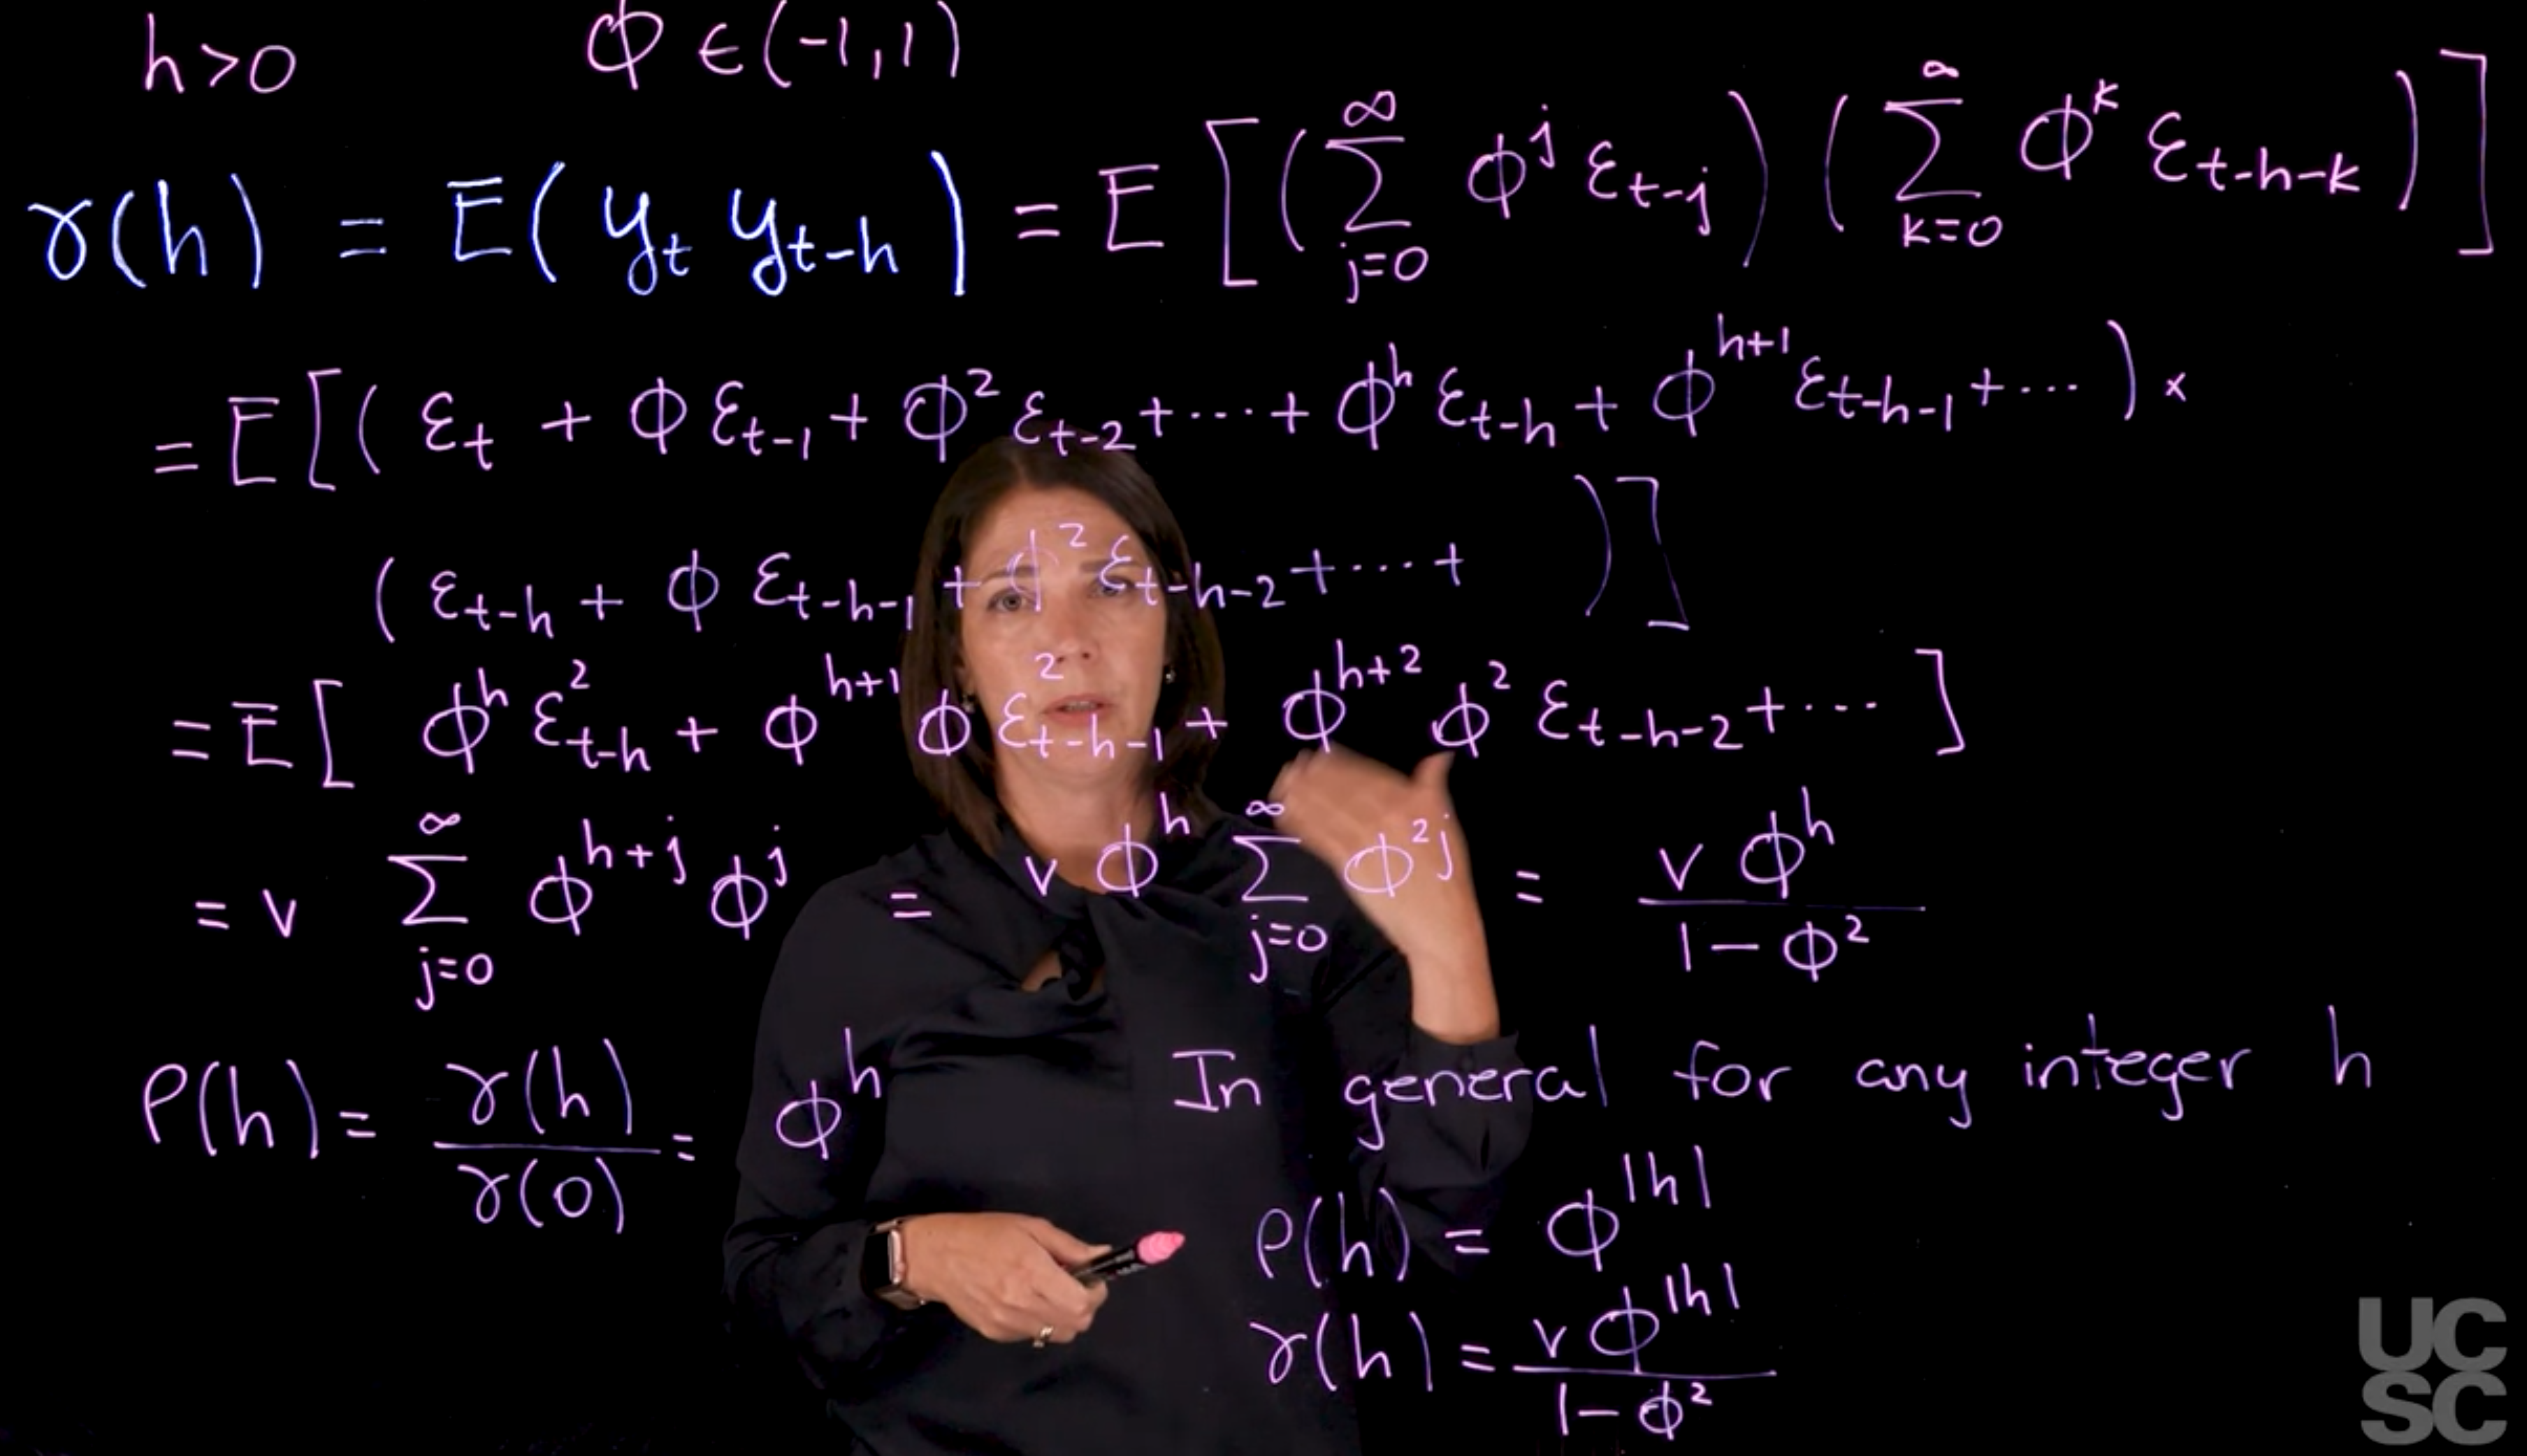 h>0 ϕ ∈ (-1,1)
γ(h) = E( y_t y_{t-h} ) = E [ ( ∑_{j=0}^{∞} ϕ^j ε_{t-j} ) ( ∑_{k=0}^{∞} ϕ^k ε_{t-h-k} ) ]
= E[ ( ε_t + ϕ ε_{t-1} + ϕ^2 ε_{t-2} + ⋯ + ϕ^h ε_{t-h} + ϕ^{h+1} ε_{t-h-1} + ⋯ ) ×
( ε_{t-h} + ϕ ε_{t-h-1} + ϕ^2 ε_{t-h-2} + ⋯ + ) ]
= E[ ϕ^h ε_{t-h}^2 + ϕ^{h+1} ϕ ε_{t-h-1}^2 + ϕ^{h+2} ϕ^2 ε_{t-h-2} + ⋯ ]
= v ∑_{j=0}^{∞} ϕ^{h+j} ϕ^j = v ϕ^h ∑_{j=0}^{∞} ϕ^{2j} = \frac{v ϕ^h}{1-ϕ^2}
ρ(h) = \frac{γ(h)}{γ(0)} = ϕ^h
In general for any integer h
ρ(h) = ϕ^{|h|}
γ(h) = \frac{v ϕ^{|h|}}{1-ϕ^2}
UC
SC